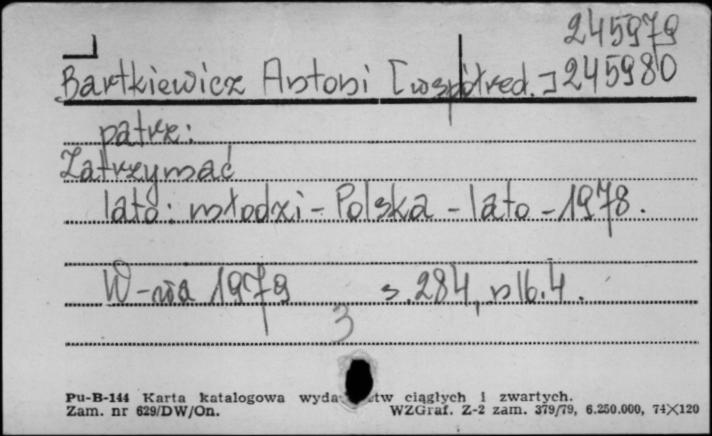 245979
Bartkiewicz Antoni [współred.] 245980
patrz:
Zatrzymać
lato: młodzi - Polska - lato - 1978.
W-wa 1979 s. 284, nlb. 4.
3
Pu-B-144 Karta katalogowa wyda tw ciągłych i zwartych.
Zam. nr 629/DW/On. WZGraf. Z-2 zam. 379/79, 6.250.000, 74×120